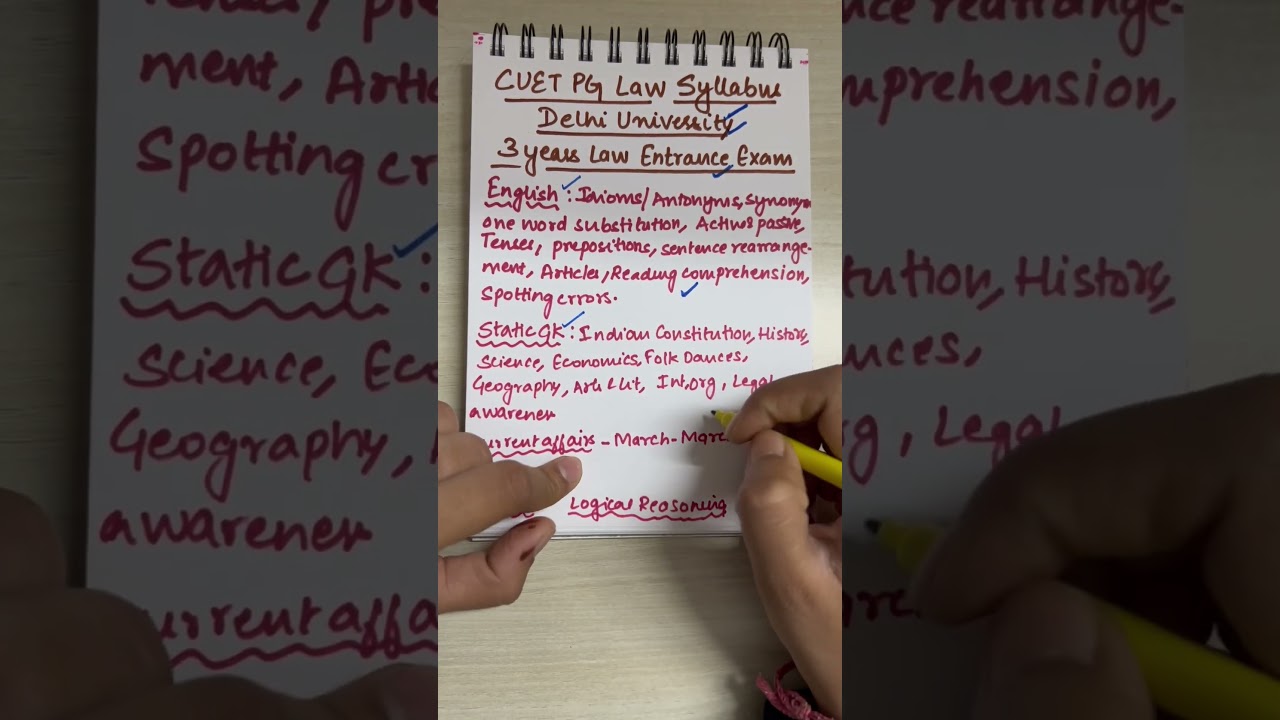 CUET PG Law Syllabus
Delhi University
3 years Law Entrance Exam
English : Idioms/ Antonyms, synonyms
one word substitution, Active & passive,
Tenses, prepositions, sentence rearrange-
ment, Articles, Reading comprehension,
Spotting errors.
Static GK : Indian Constitution, History,
Science, Economics, Folk Dances,
Geography, Art & Lit, Int. org, Legal
awareness
urrent affairs - March - Marc
Logical Reasoning